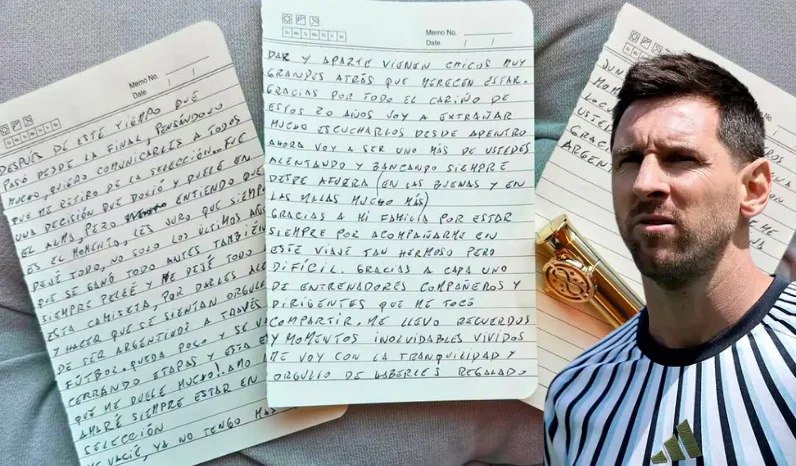 Memo No.
Date / /
DESPUES DE ESTE TIEMPO QUE
PASÓ DESDE LA FINAL, PENSANDOLO
MUCHO, QUIERO COMUNICARLES A TODOS
QUE ME RETIRO DE LA SELECCIÓN. FUE
UNA DECISION QUE DOLIÓ Y DUELE EN
EL ALMA, PERO ENTIENDO QUE
ES EL MOMENTO, LES JURO QUE SIEMP
DEJÉ TODO, NO SOLO LOS ÚLTIMOS AÑOS
QUE SE GANÓ TODO ANTES TAMBIÉN
SIEMPRE PELEÉ Y ME DEJÉ TODO
ESTA CAMISETA, POR DARLES ALE
Y HACER QUE SE SIENTAN ORGULL
DE SER ARGENTINOS A TRAVÉS
FÚTBOL. QUEDA POCO Y SE V
CERRANDO ETAPAS Y ESTA E
QUE ME DUELE MUCHO! AMO
AMARÉ SIEMPRE ESTAR EN
SELECCIÓN
ME VACIÉ, YA NO TENGO MAS
Memo No.
Date / /
DAR Y APARTE VIENEN CHICOS MUY
GRANDES ATRÁS QUE MERECEN ESTAR.
GRACIAS POR TODO EL CARIÑO DE
ESTOS 20 AÑOS VOY A EXTRAÑAR
MUCHO ESCUCHARLOS DESDE ADENTRO
AHORA VOY A SER UNO MÁS DE USTEDES
ALENTANDO Y BANCANDO SIEMPRE
DESDE AFUERA (EN LAS BUENAS Y EN
LAS MALAS MUCHO MÁS)
GRACIAS A MI FAMILIA POR ESTAR
SIEMPRE POR ACOMPAÑARME EN
ESTE VIAJE TAN HERMOSO PERO
DIFÍCIL. GRACIAS A CADA UNO
DE ENTRENADORES COMPAÑEROS Y
DIRIGENTES QUE ME TOCÓ
COMPARTIR, ME LLEVO RECUERDOS
Y MOMENTOS INOLVIDABLES VIVIDOS
ME VOY CON LA TRANQUILIDAD Y
ORGULLO DE HABERLES REGALADO
JUN
MOME
LOCU
USTED
GRACI
ARGEN